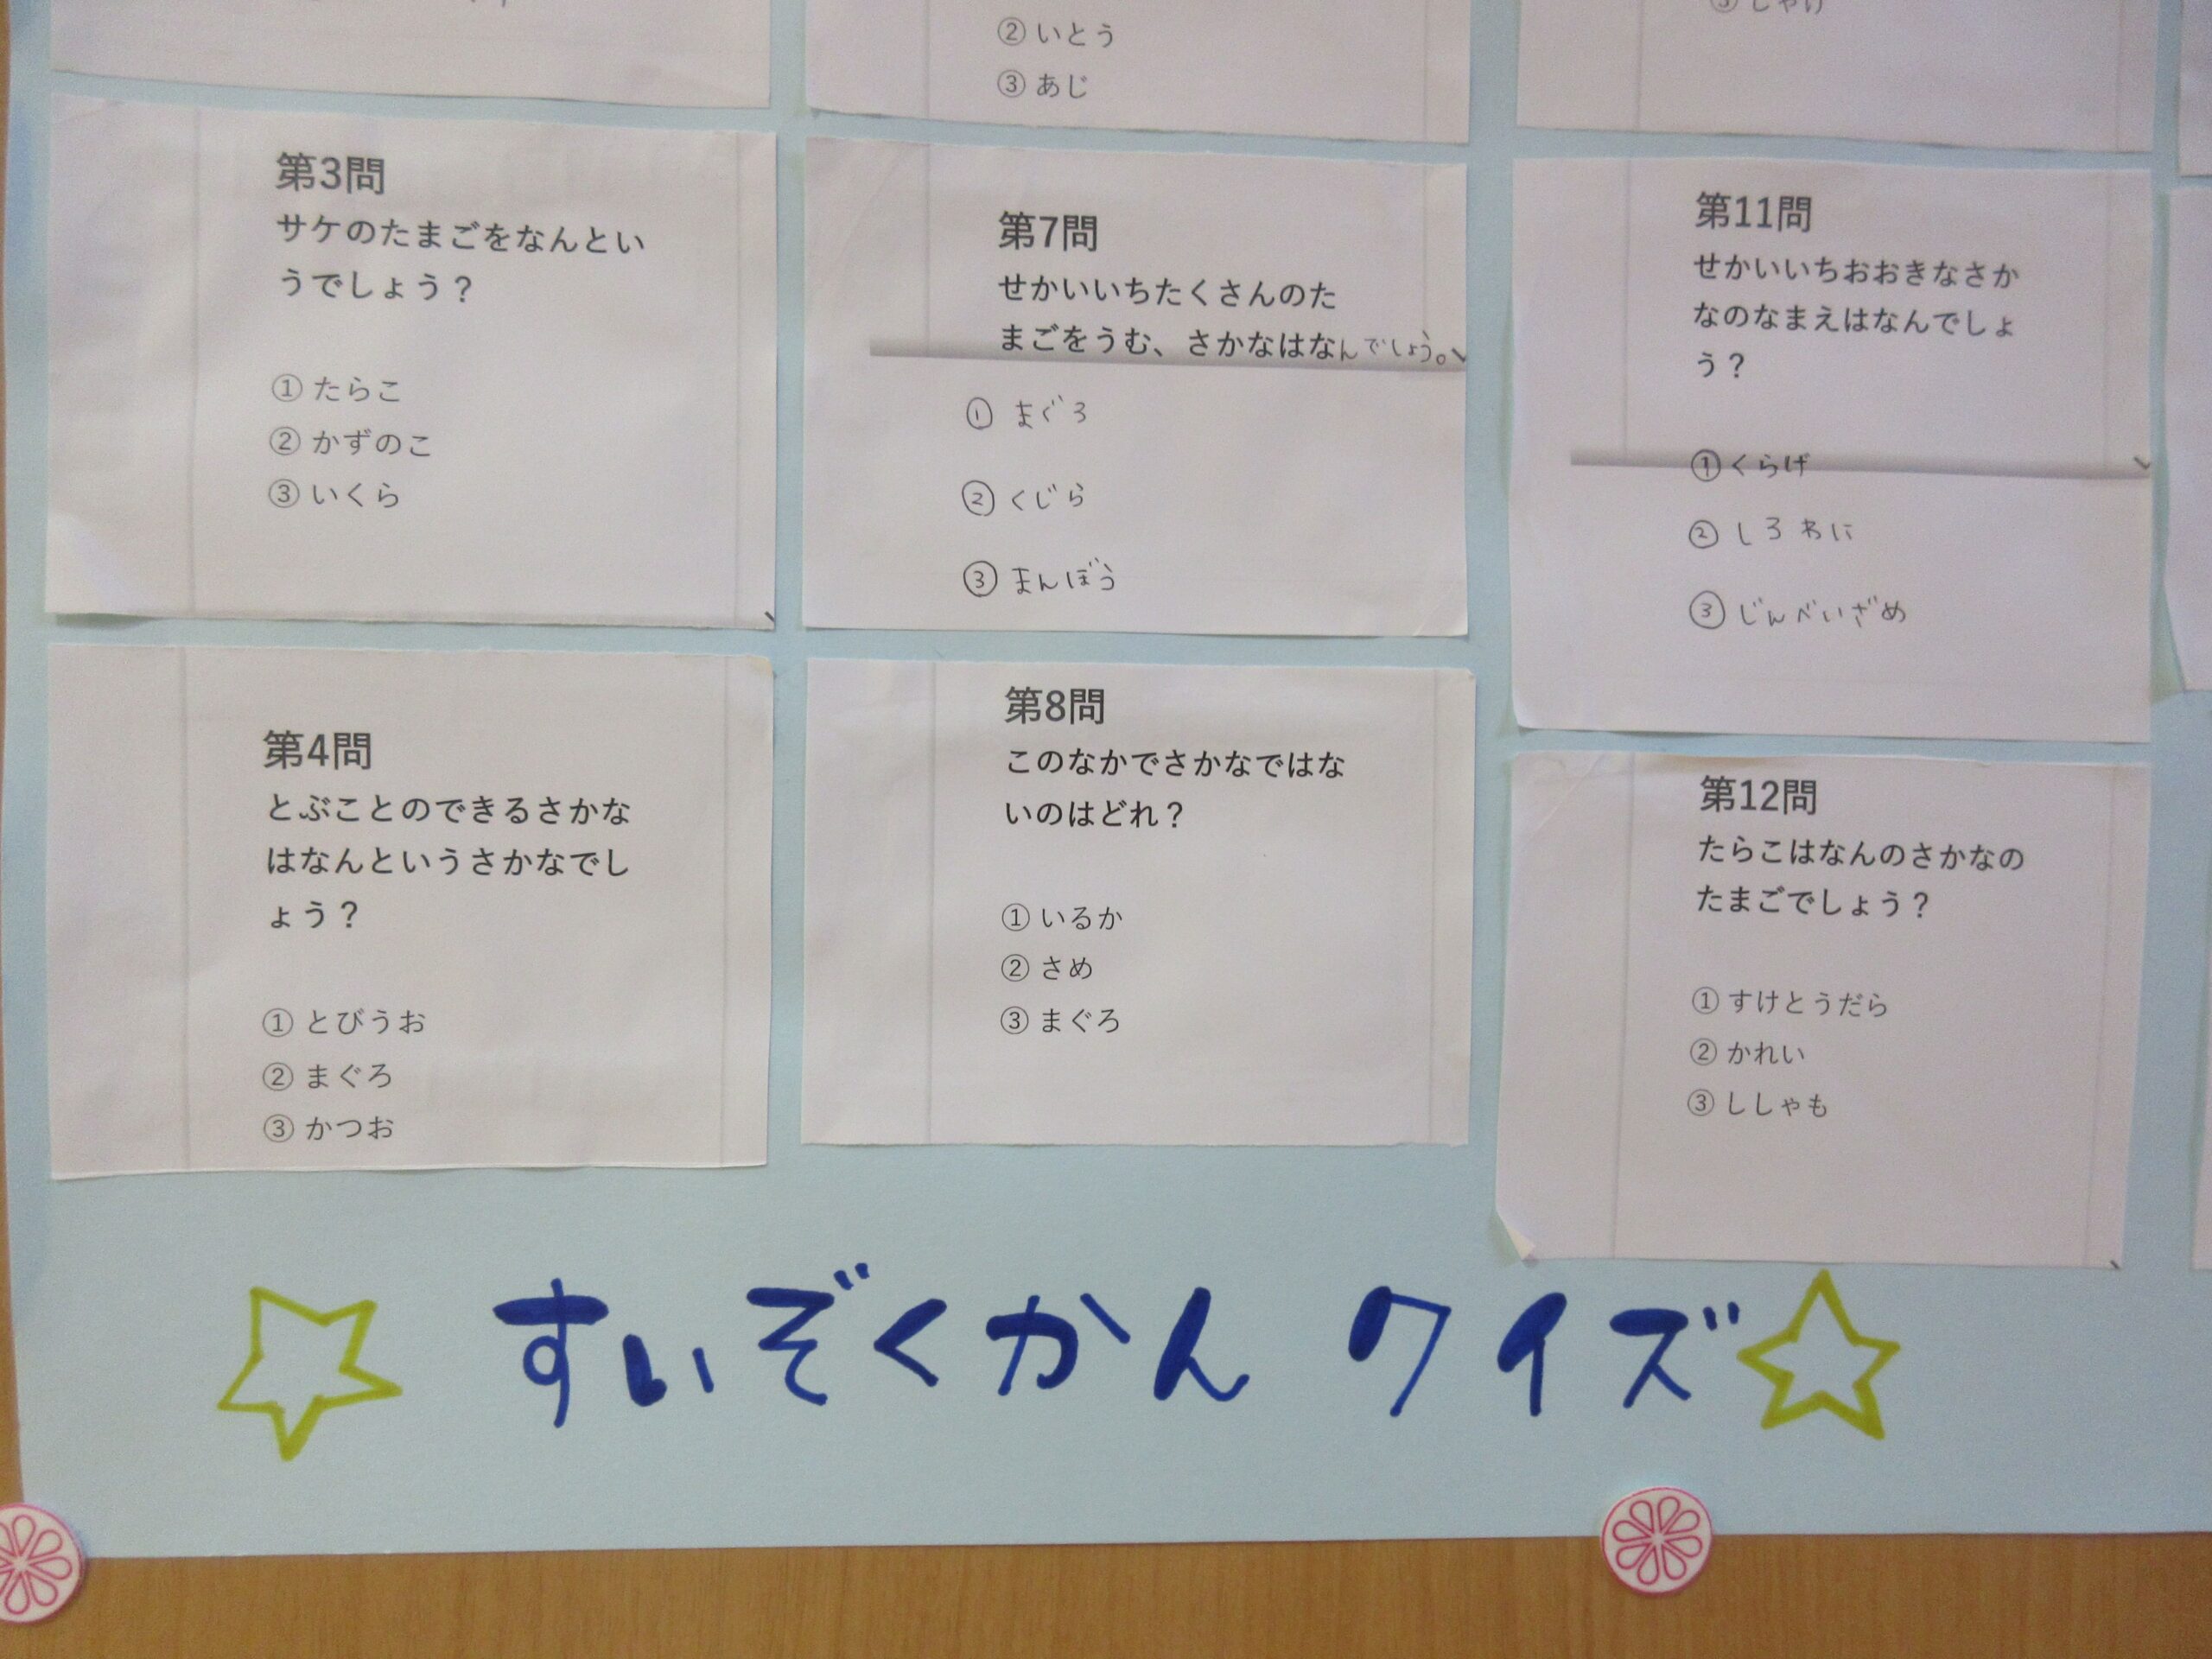 ② いとう
③ あじ
③ しゃけ
第3問
サケのたまごをなんとい
うでしょう？
① たらこ
② かずのこ
③ いくら
第7問
せかいいちたくさんのた
まごをうむ、さかなはなんでしょう。
① まぐろ
② くじら
③ まんぼう
第11問
せかいいちおおきなさか
なのなまえはなんでしょ
う？
① くらげ
② しろわに
③ じんべいざめ
第4問
とぶことのできるさかな
はなんというさかなでし
ょう？
① とびうお
② まぐろ
③ かつお
第8問
このなかでさかなではな
いのはどれ？
① いるか
② さめ
③ まぐろ
第12問
たらこはなんのさかなの
たまごでしょう？
① すけとうだら
② かれい
③ ししゃも
すいぞくかん クイズ